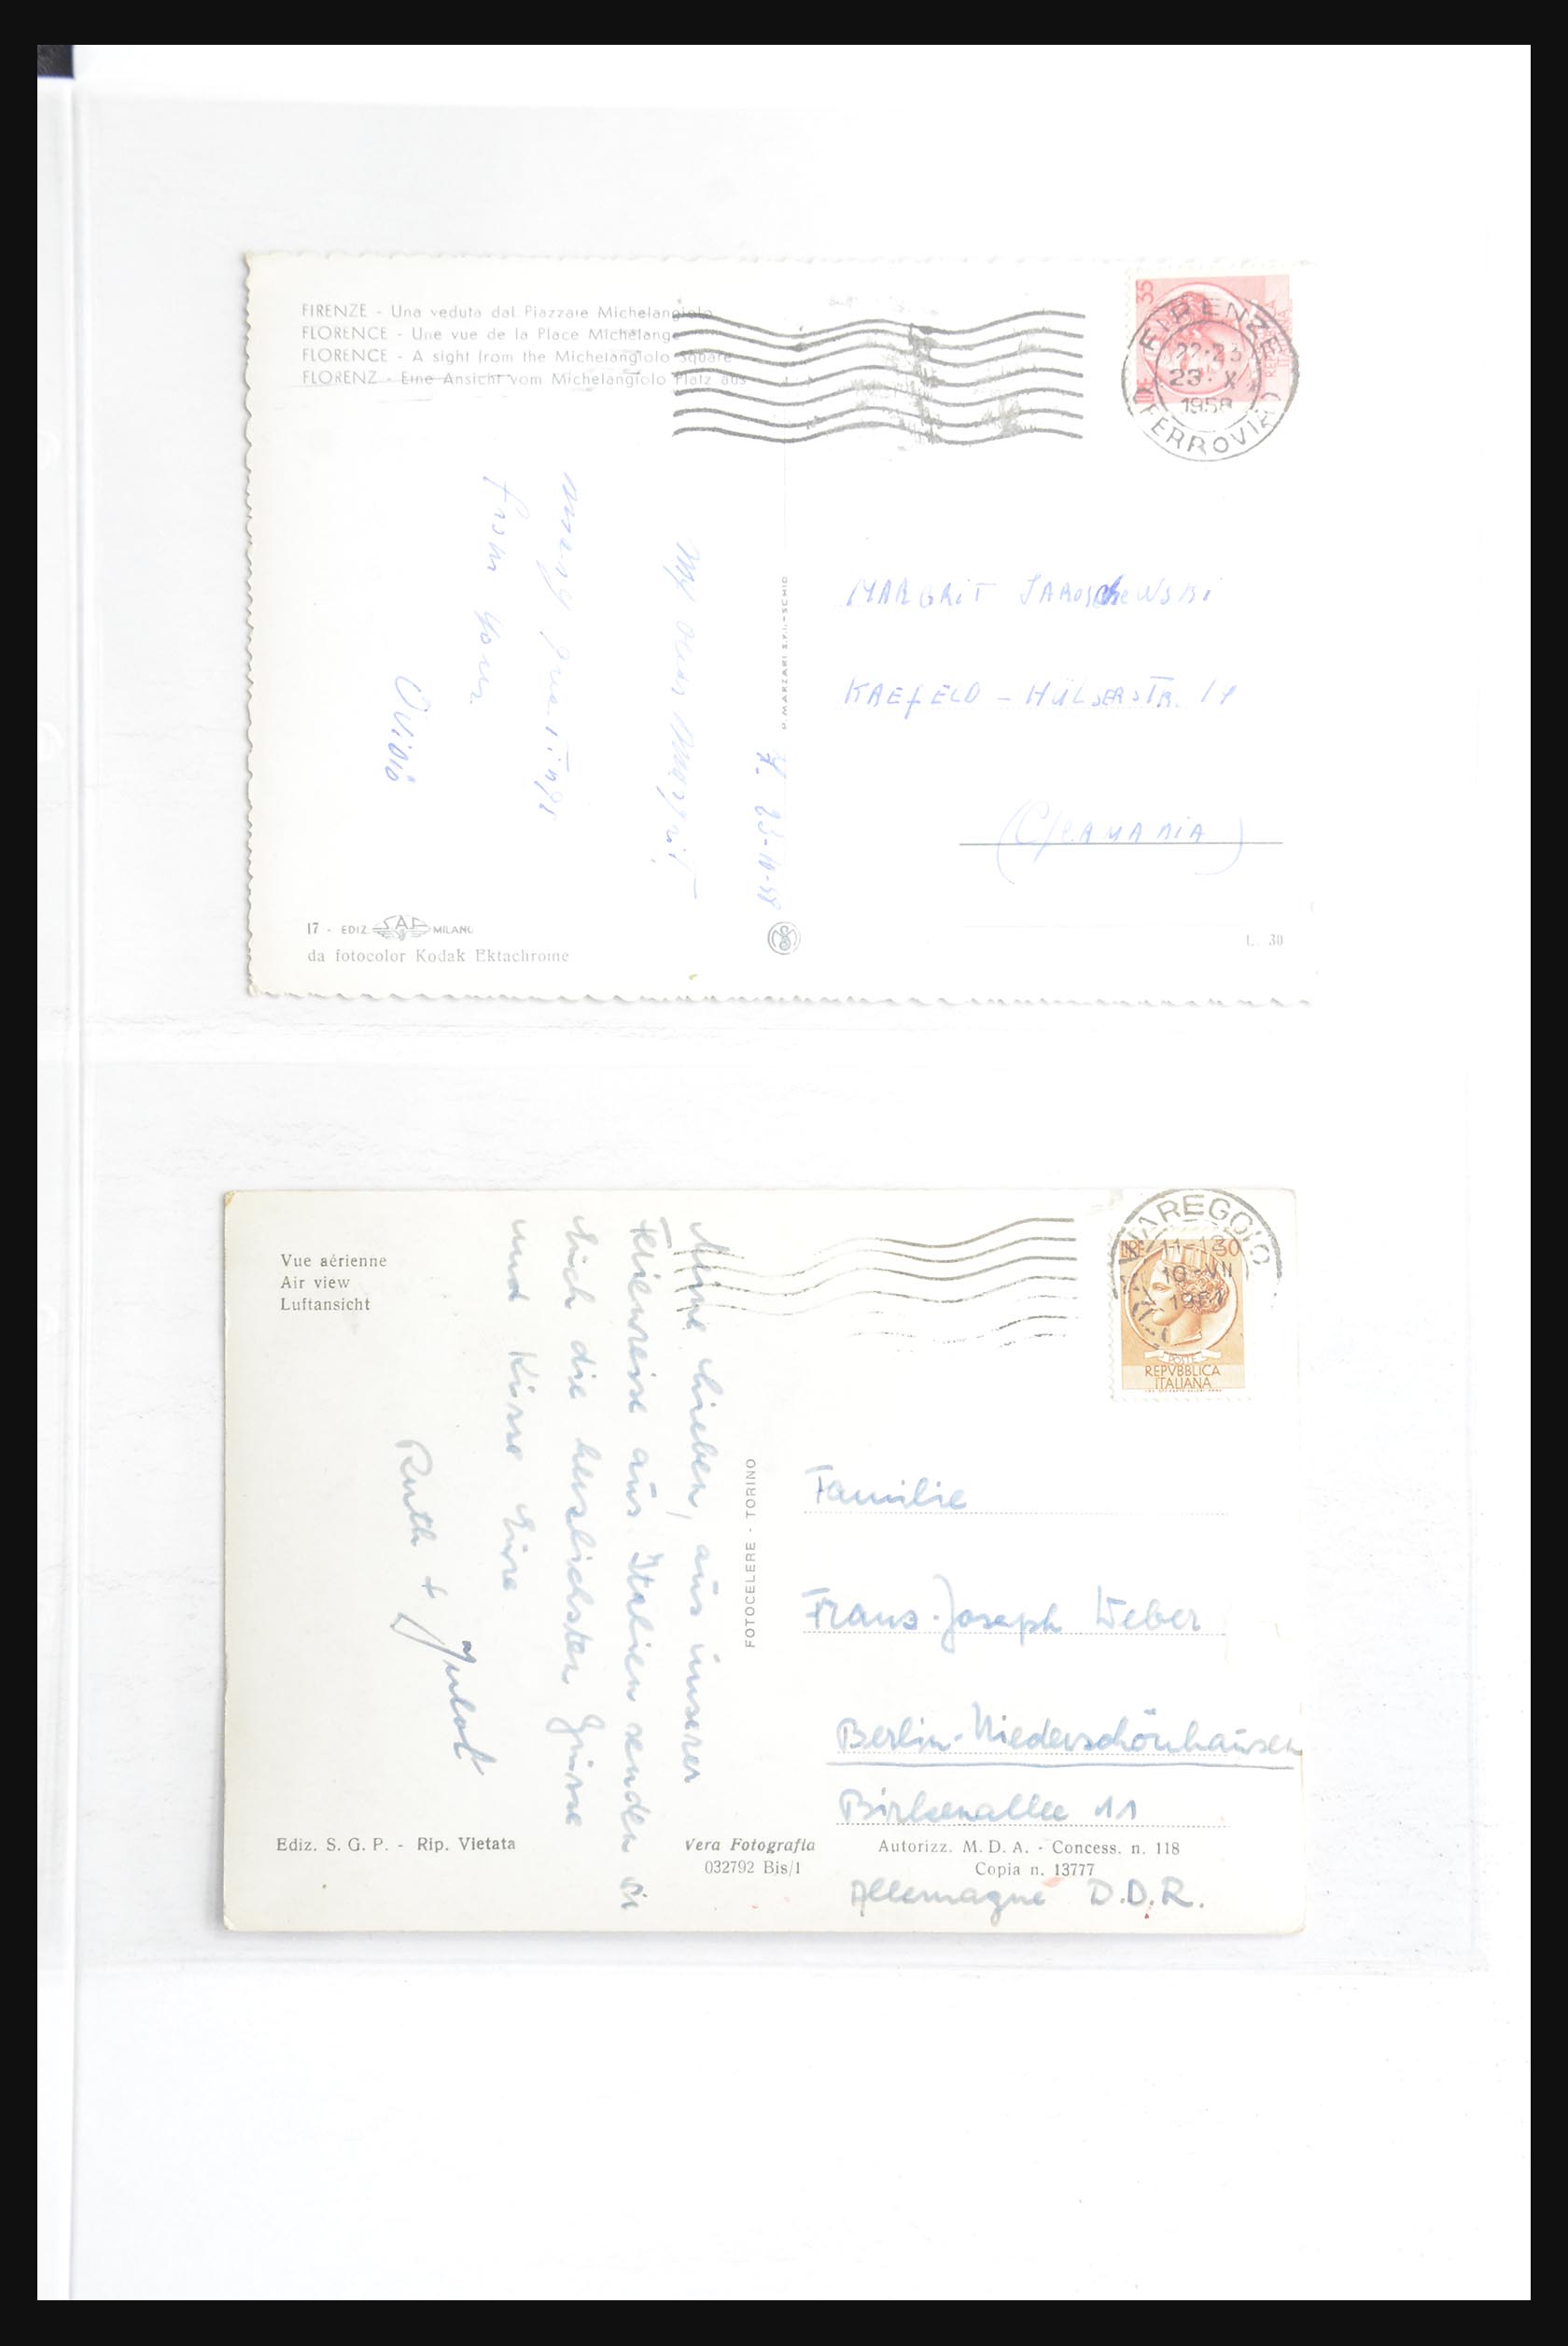 FIRENZE - Una veduta dal Piazzale Michelangiolo
FLORENCE - Une vue de la Place Michelange
FLORENCE - A sight from the Michelangiolo Square
FLORENZ - Eine Ansicht vom Michelangiolo Platz aus
35
FIRENZE
22-23
23· X
1958
FERROVIA
23-10-58
My dear Margrit
many greetings
from your
Ovidio
P. MARZARI S.r.l.-SCHIO
MARGRIT JAROSCHEWSKI
KREFELD - HÜLSERSTR. 19
(GERMANIA)
17 - EDIZ. SAF MILANO
da fotocolor Kodak Ektachrome
L. 30
Vue aérienne
Air view
Luftansicht
VIAREGGIO
11-12
10-VII
LIRE 30
POSTE
REPVBBLICA
ITALIANA
Meine Lieben, aus unserer
Ferienreise aus Italien senden wir
Euch die herzlichsten Grüsse
und Küsse Eure
Ruth +
FOTOCELERE - TORINO
Familie
Franz-Joseph Weber
Berlin-Niederschönhausen
Birkenallee 11
Allemagne D.D.R.
Ediz. S. G. P. - Rip. Vietata
Vera Fotografia
032792 Bis/1
Autorizz. M. D. A. - Concess. n. 118
Copia n. 13777